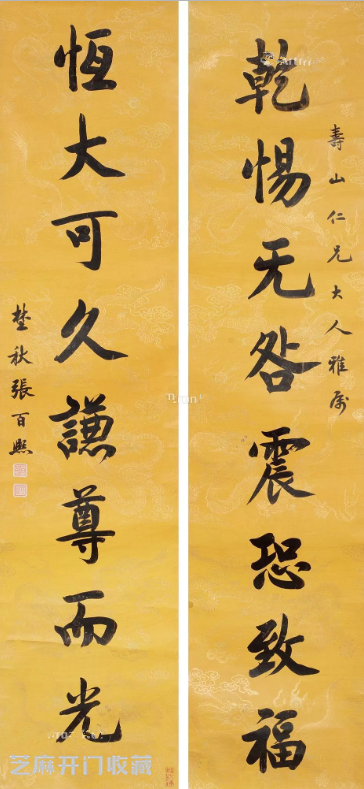 壽山仁兄大人雅属
乾惕无咎震恐致福
恆大可久謙尊而光
埜秋張百熙
芝麻开门收藏